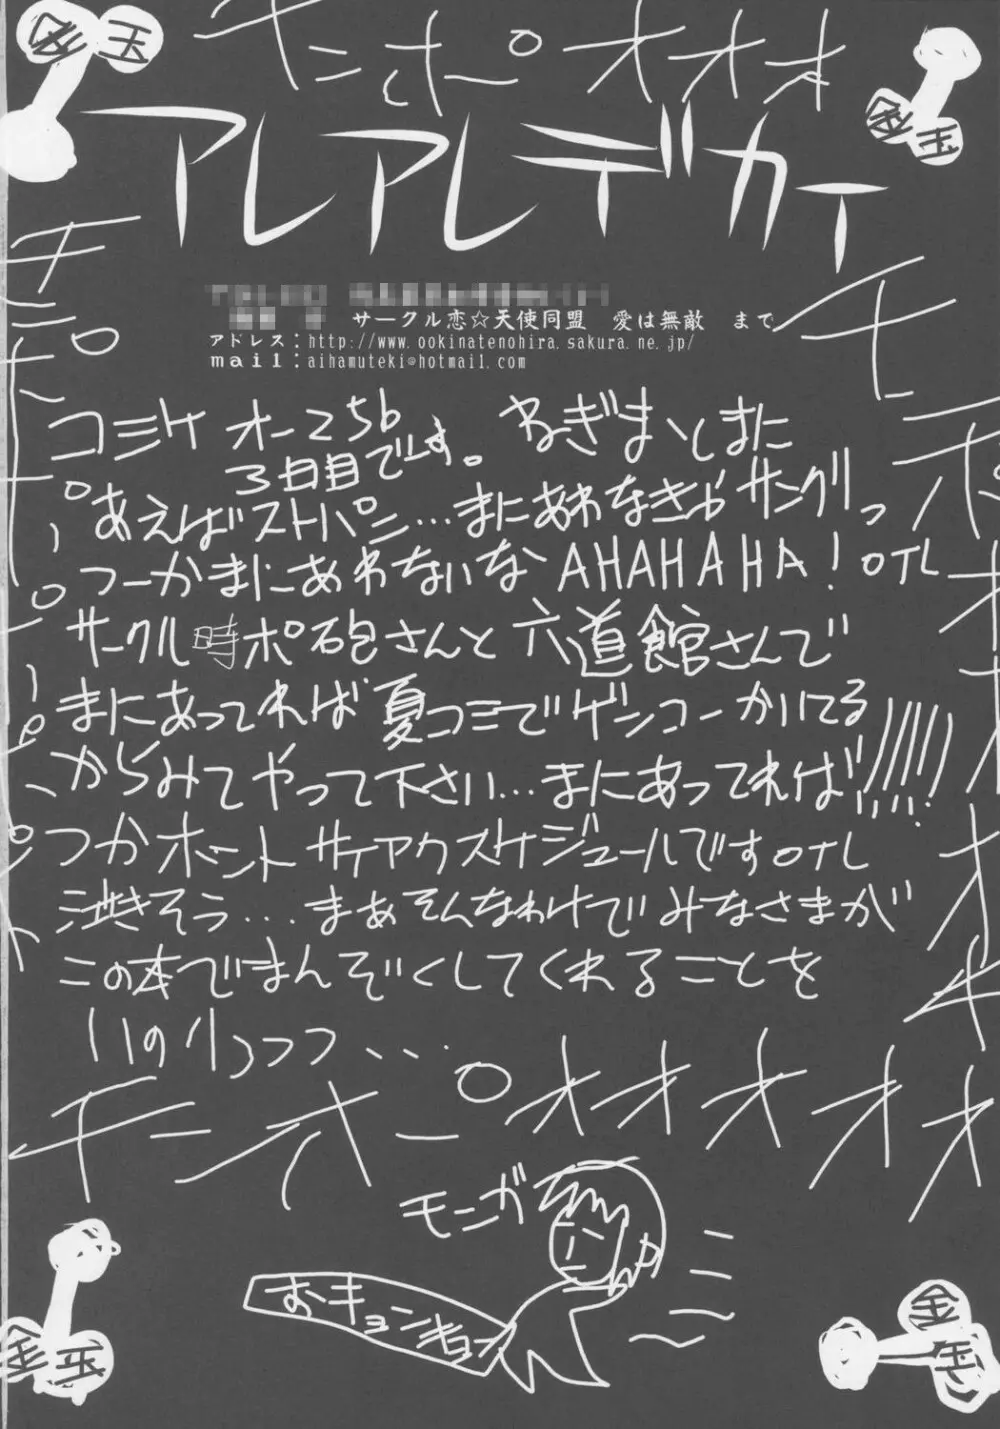 チンポーオオオ
金玉
金玉
アレアレデカイ
サークル恋☆天使同盟　愛は無敵　まで
アドレス：http://www.ookinatenohira.sakura.ne.jp/
mail：aihamuteki@hotmail.com
コミケ オー25b ねぎま、しまに
3日目でーす。
あえばストパン…まにあわなきゃサンクリっ
つーかまにあわないな AHAHAHA! OTL
サークル時ポ砲さんと六道館さんで
まにあってれば夏コミでゲンコーかいてる
からみてやって下さい…まにあってれば!!!!!
つかホントサイアクスケジュールですOTL
泣きそう…まあそんなわけでみなさまが
この本でまんぞくしてくれることを
いのりつつつ、…
チンポーオオオオオオ
モニガ
おキョンキョン
金玉
金玉